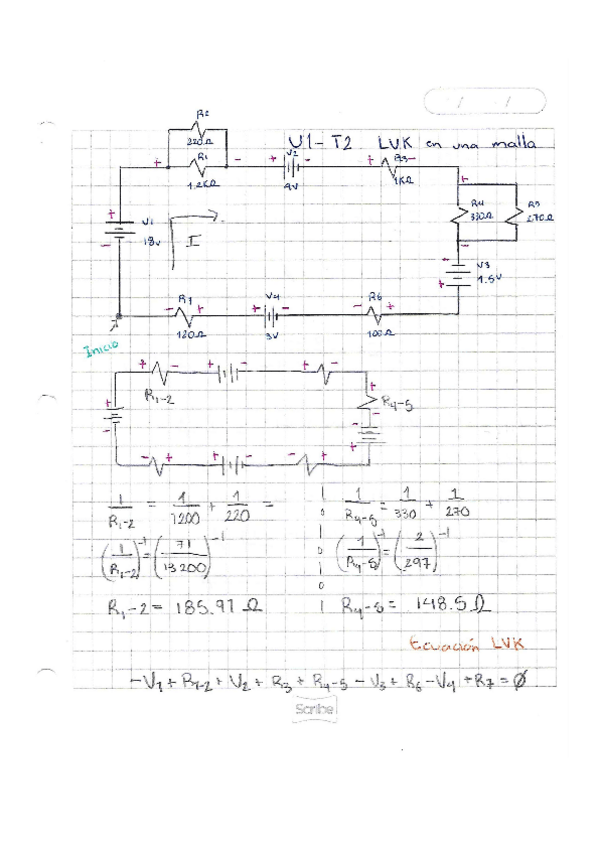 U1-T2 LVK en una malla
R2
220Ω
R1
1.2KΩ
V2
4V
R3
1KΩ
R4
330Ω
R5
270Ω
V1
18V
I
V3
1.5V
R7
120Ω
V4
3V
R6
100Ω
Inicio
R1-2
R4-5
1/R1-2 = 1/1200 + 1/220 =
1/R4-5 = 1/330 + 1/270
(1/R1-2)^-1 = (71/13200)^-1
(1/R4-5)^-1 = (2/297)^-1
R1-2 = 185.91 Ω
R4-5 = 148.5 Ω
Ecuación LVK
-V1 + R1-2 + V2 + R3 + R4-5 - V3 + R6 - V4 + R7 = 0
Scribe